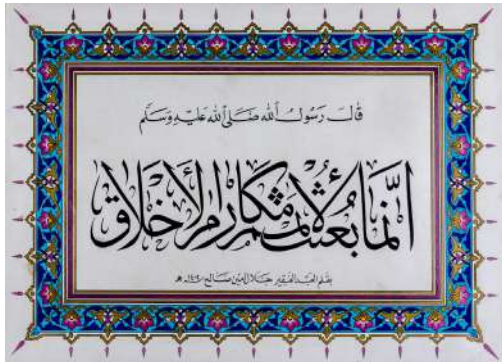 قَالَ رَسُولُ اللهِ صَلَّى اللهُ عَلَيْهِ وَسَلَّمَ
إنَّمَا بُعِثْتُ لِأُتَمِّمَ مَكَارِمَ الأَخْلَاقِ
بقلم العبد الفقير جلال امين صالح